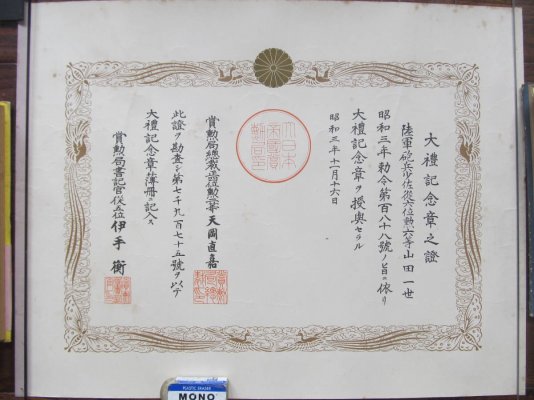 大禮記念章之證
陸軍砲兵少佐從六位勲六等山田一世
昭和三年勅令第百八十八號ノ旨ニ依リ
大禮記念章ヲ授與セラル
昭和三年十一月十六日
大日本
帝國賞
勲局印
賞勲局總裁正三位勲二等天岡直嘉
此證ヲ勘査シ第七千九百七十五號ヲ以テ
大禮記念章簿册ニ記入ス
賞勲局書記官從五位伊手衛
PLASTIC ERASER
MONO